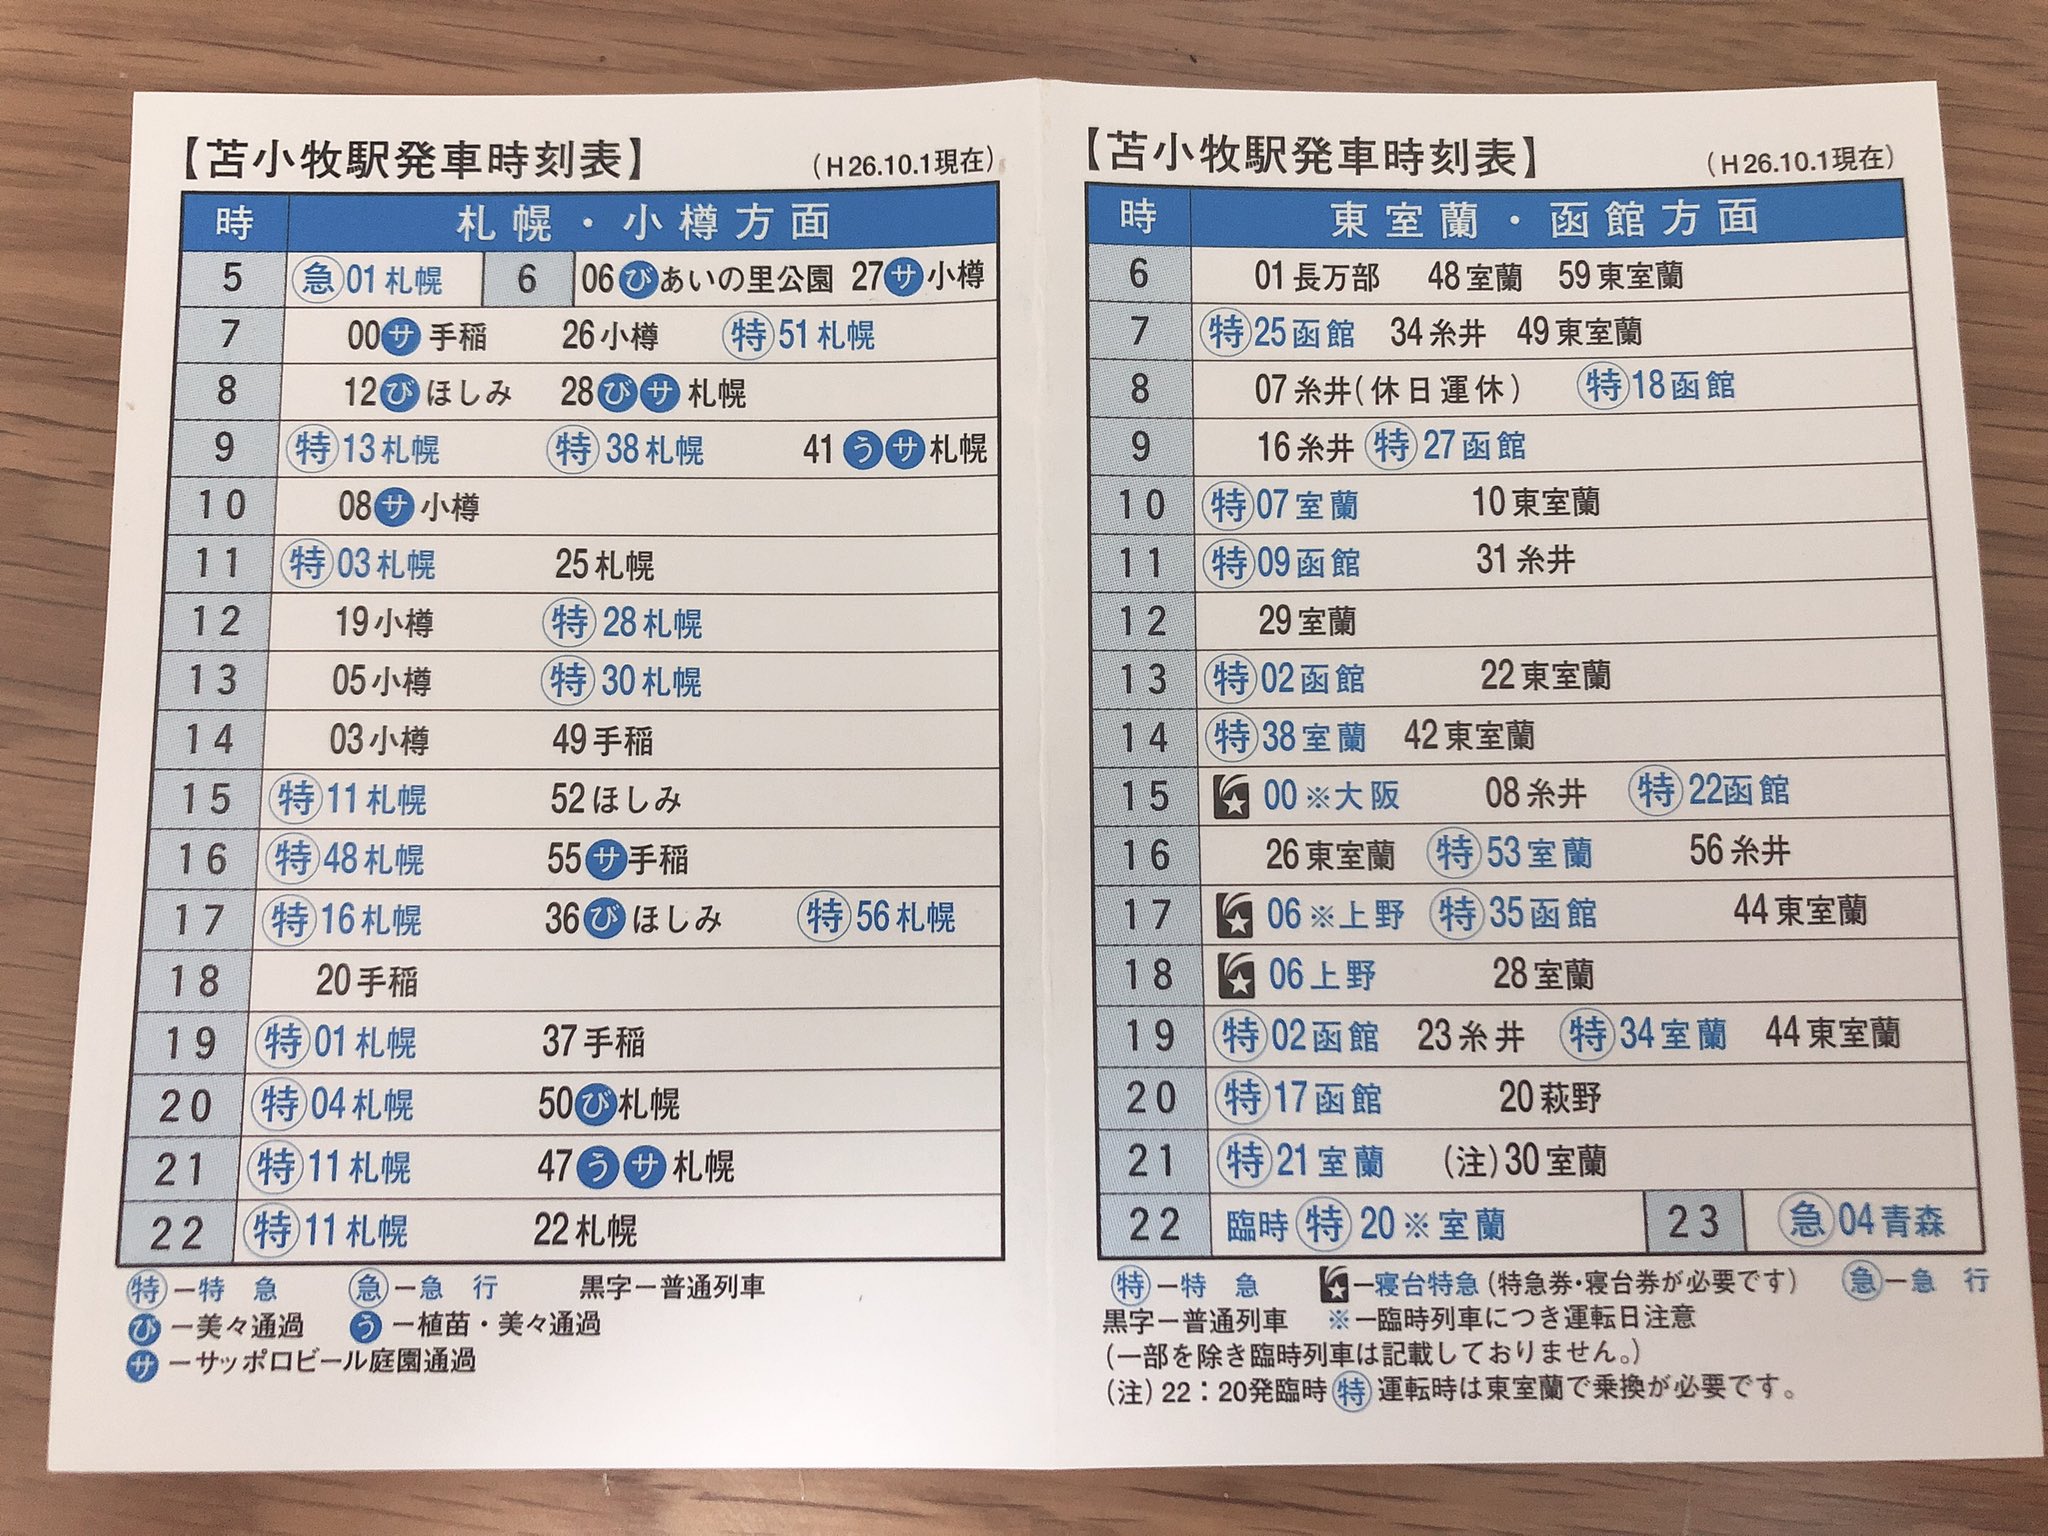 【苫小牧駅発車時刻表】 (H26.10.1現在)
時 札幌・小樽方面
5 急01札幌 6 06びあいの里公園 27サ小樽
7 00サ手稲 26小樽 特51札幌
8 12びほしみ 28びサ札幌
9 特13札幌 特38札幌 41うサ札幌
10 08サ小樽
11 特03札幌 25札幌
12 19小樽 特28札幌
13 05小樽 特30札幌
14 03小樽 49手稲
15 特11札幌 52ほしみ
16 特48札幌 55サ手稲
17 特16札幌 36びほしみ 特56札幌
18 20手稲
19 特01札幌 37手稲
20 特04札幌 50び札幌
21 特11札幌 47うサ札幌
22 特11札幌 22札幌
特ー特急 急ー急行 黒字ー普通列車
びー美々通過 うー植苗・美々通過
サーサッポロビール庭園通過
【苫小牧駅発車時刻表】 (H26.10.1現在)
時 東室蘭・函館方面
6 01長万部 48室蘭 59東室蘭
7 特25函館 34糸井 49東室蘭
8 07糸井(休日運休) 特18函館
9 16糸井 特27函館
10 特07室蘭 10東室蘭
11 特09函館 31糸井
12 29室蘭
13 特02函館 22東室蘭
14 特38室蘭 42東室蘭
15 00※大阪 08糸井 特22函館
16 26東室蘭 特53室蘭 56糸井
17 06※上野 特35函館 44東室蘭
18 06上野 28室蘭
19 特02函館 23糸井 特34室蘭 44東室蘭
20 特17函館 20萩野
21 特21室蘭 (注)30室蘭
22 臨時特20※室蘭 23 急04青森
特ー特急 ー寝台特急(特急券・寝台券が必要です) 急ー急行
黒字ー普通列車 ※ー臨時列車につき運転日注意
(一部を除き臨時列車は記載しておりません。)
(注)22：20発臨時特運転時は東室蘭で乗換が必要です。